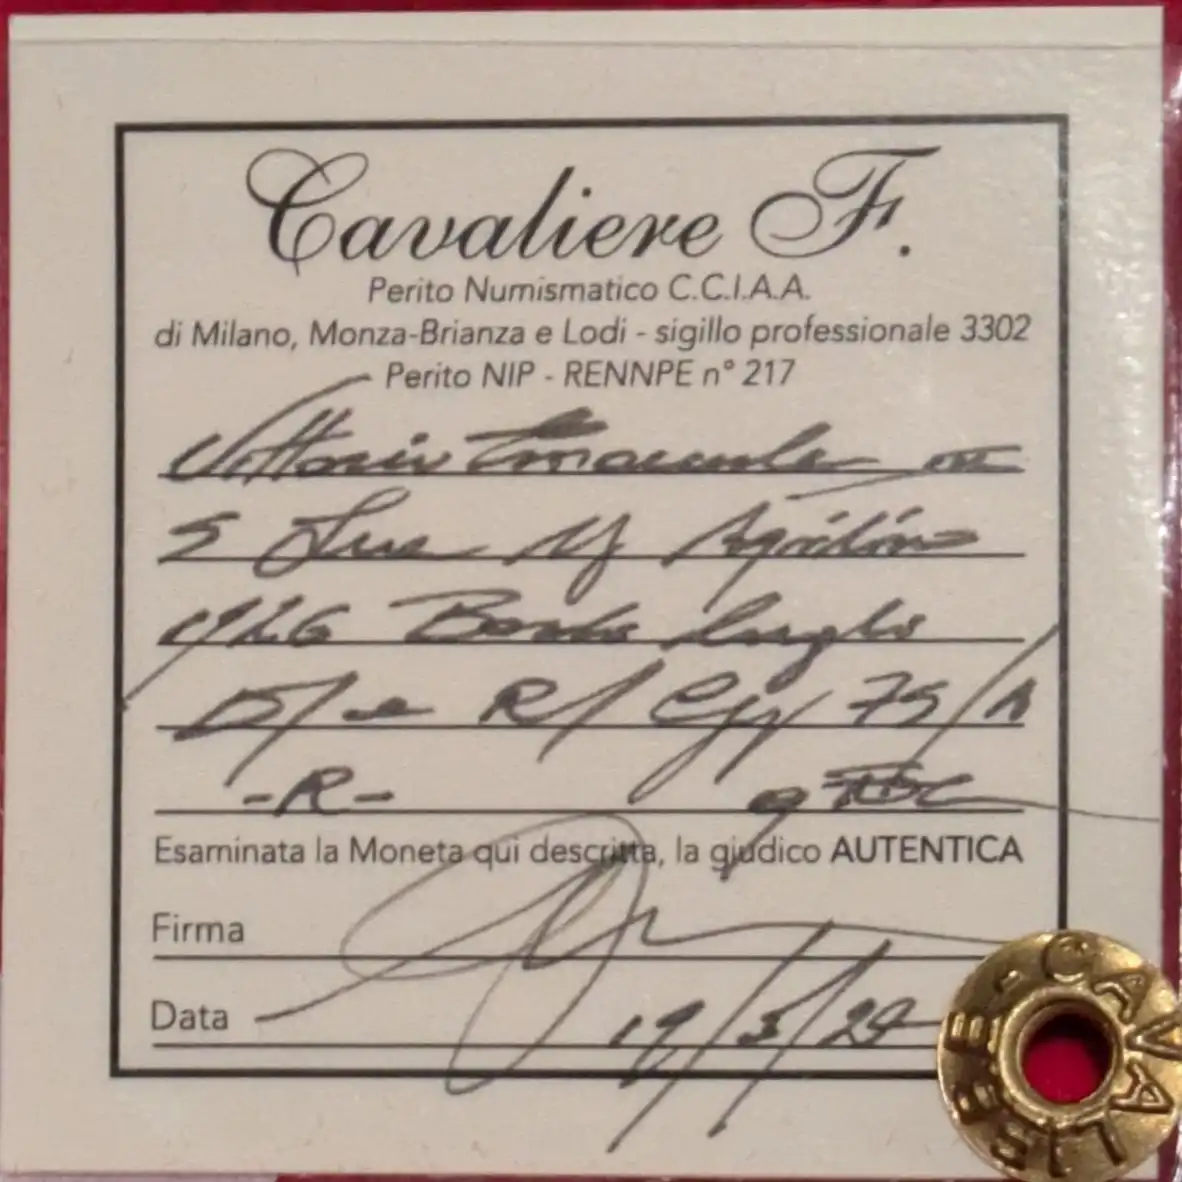 Cavaliere F.
Perito Numismatico C.C.I.A.A.
di Milano, Monza-Brianza e Lodi - sigillo professionale 3302
Perito NIP - RENNPE n° 217
Vittorio Emanuele III
5 Lire Aquilino
1926 Bordo largo
D/ e R/ Gig 75/A
-R- qFDC
Esaminata la Moneta qui descritta, la giudico AUTENTICA
Firma
Data 19/3/24
CAVALIERE